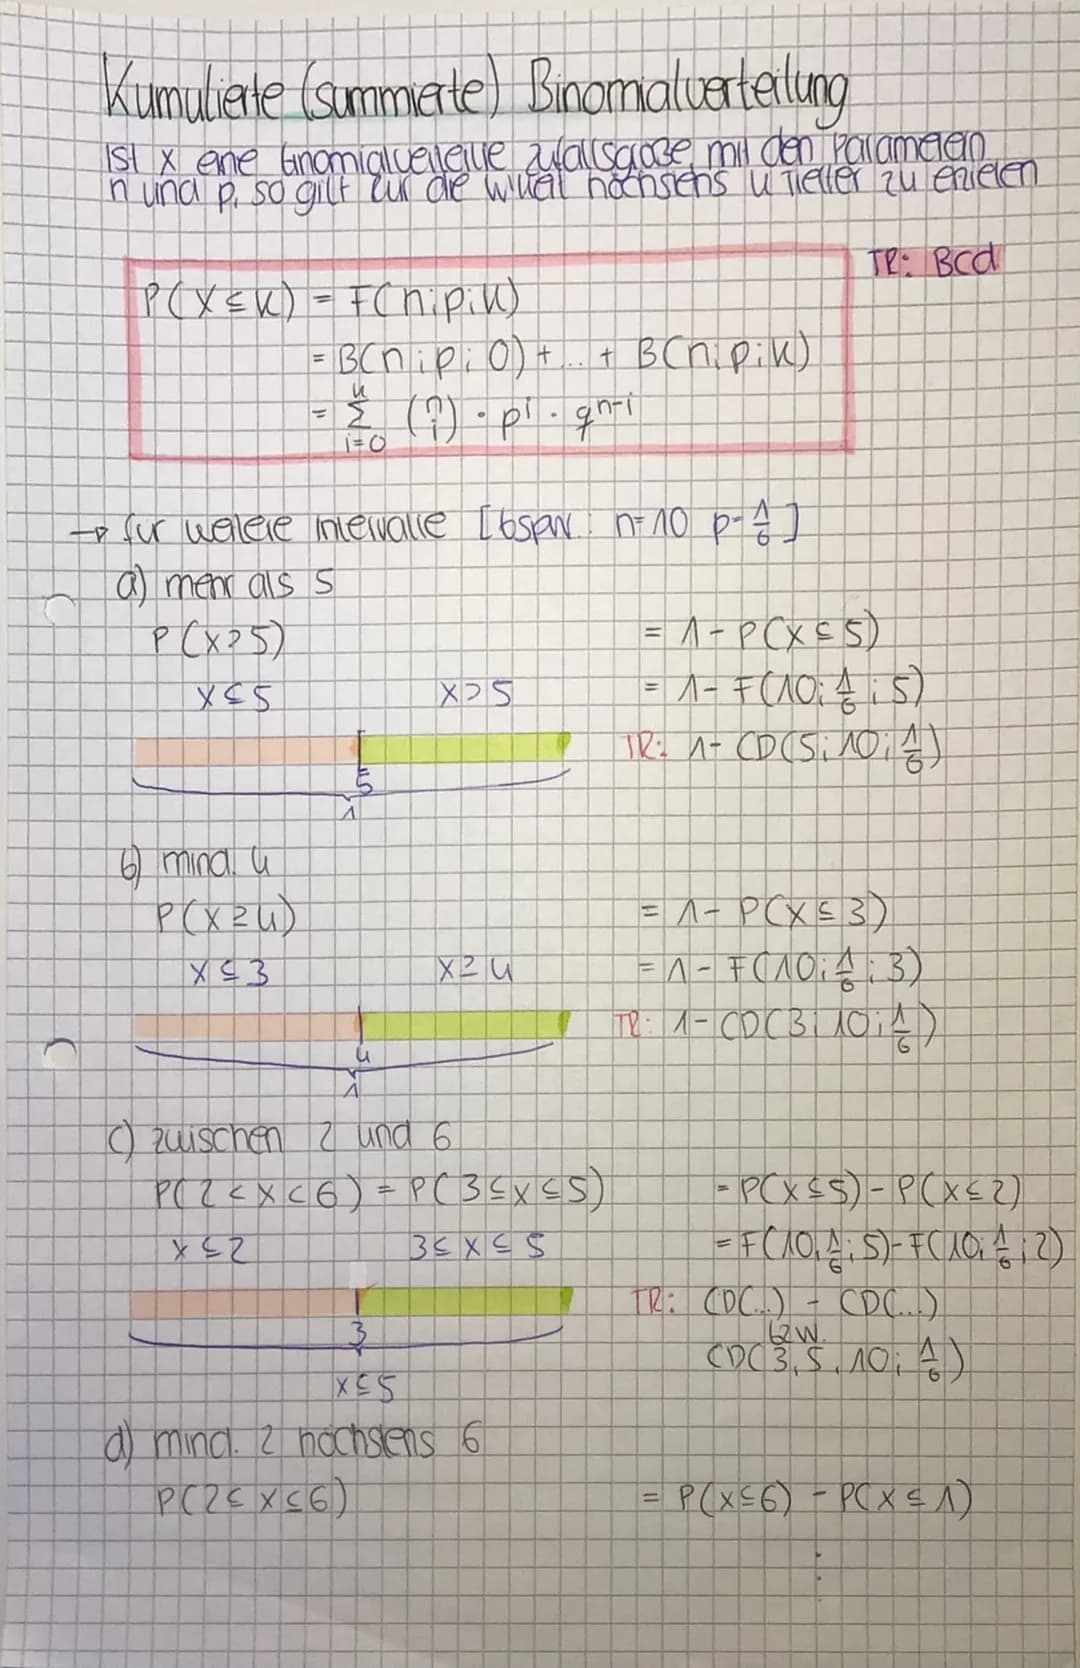 Kumulierte (summierte) Binomialverteilung
Ist X eine binomialverteilte Zufallsgröße, mit den Parametern
n und p, so gilt für die W'keit höchstens k Treffer zu erzielen
TR: Bcd
P(X≤k) = F(n;p;k)
= B(n;p;0) + ... + B(n;p;k)
= k∑i=0 (n i) · pⁱ · qⁿ⁻ⁱ
→ für weitere Intervalle [bspw.: n=10 p=1/6]
a) mehr als 5
P(X>5) = 1-P(X≤5)
X≤5 X>5 = 1- F(10; 1/6; 5)
TR: 1- CD(5; 10; 1/6)
5
1
b) mind. 4
P(X≥4) = 1- P(X≤3)
X≤3 X≥4 = 1- F(10; 1/6; 3)
TR: 1- CD(3; 10; 1/6)
4
1
c) zwischen 2 und 6
P(2<X<6) = P(3≤X≤5) = P(X≤5) - P(X≤2)
X≤2 3≤X≤5 = F(10; 1/6; 5)- F(10; 1/6; 2)
TR: CD(..) - CD(...)
3 bzw.
CD(3, 5, 10; 1/6)
X≤5
d) mind. 2 höchstens 6
P(2≤X≤6) = P(X≤6) - P(X≤1)